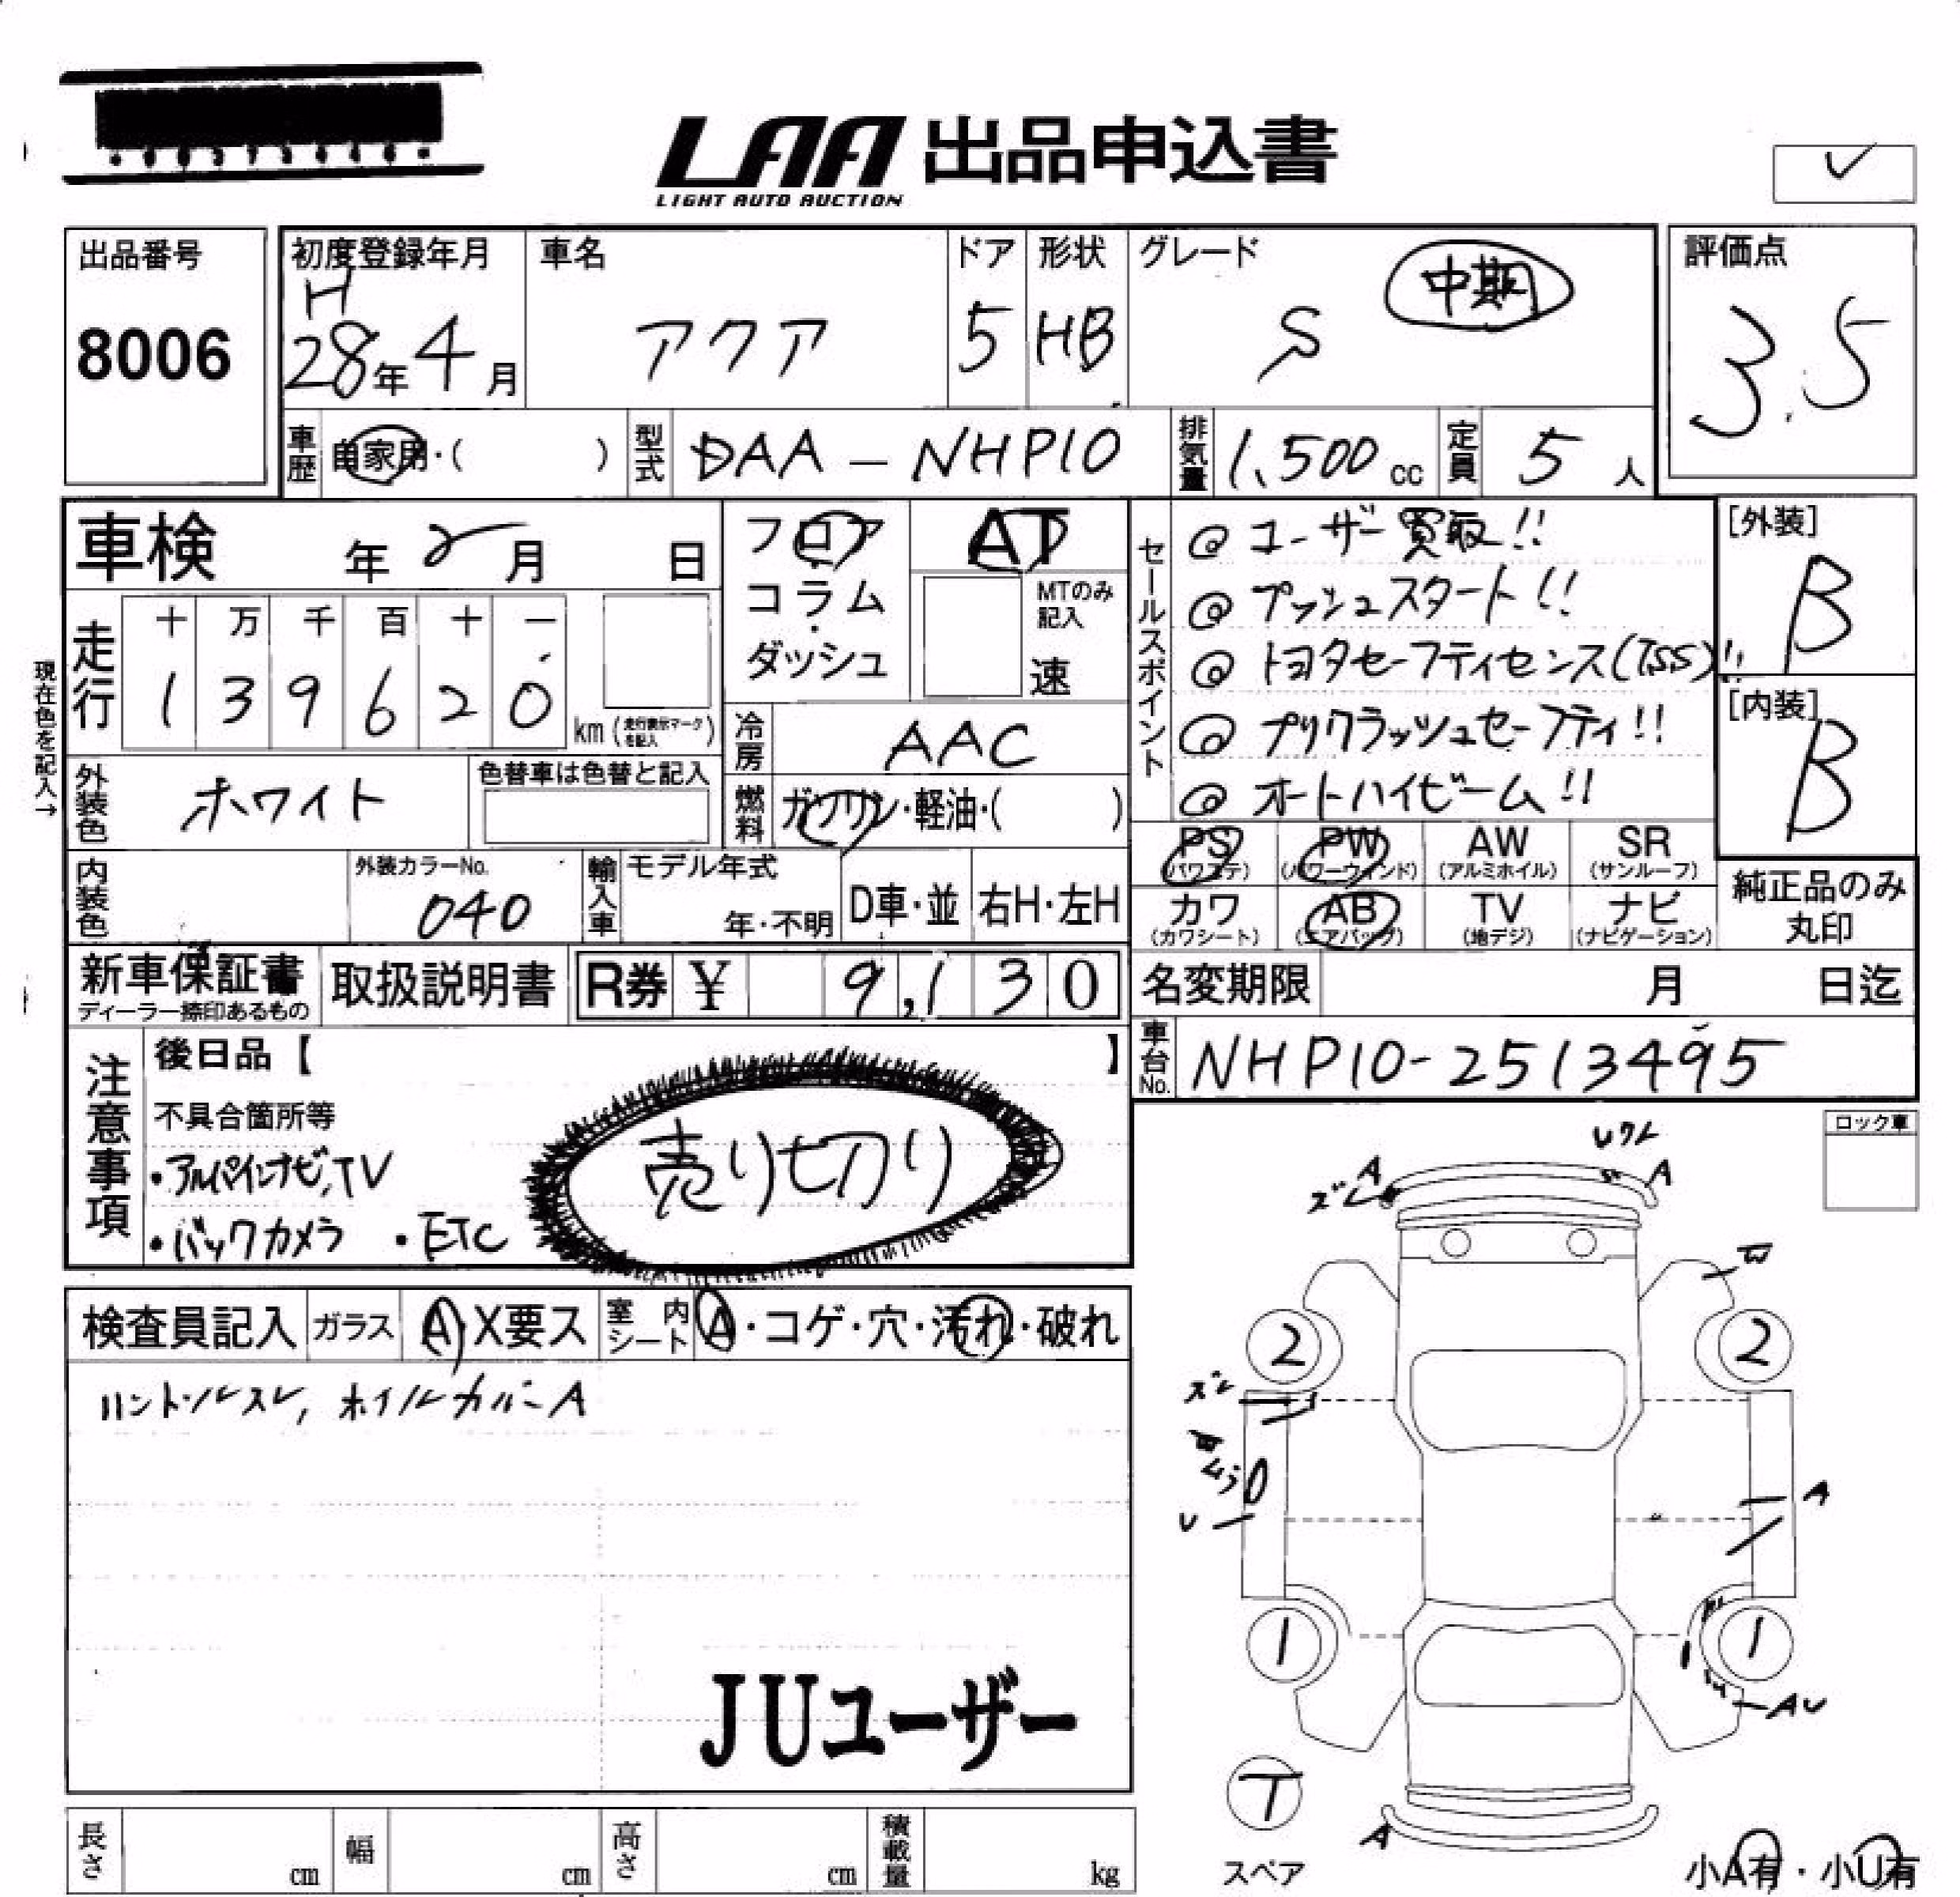 LAA 出品申込書
LIGHT AUTO AUCTION
出品番号
8006
初度登録年月
H
28年 4月
車名
アクア
ドア
5
形状
HB
グレード
S
中期
評価点
3.5
車歴
自家用・( )
型式
DAA-NHP10
排気量
1,500 cc
定員
5 人
車検 年 2 月 日
フロア
コラム
・
ダッシュ
AT
MTのみ
記入
速
セールスポイント
@ ユーザー買取!!
@ プッシュスタート!!
@ トヨタセーフティセンス(TSS)!!
@ プリクラッシュセーフティ!!
@ オートハイビーム!!
[外装]
B
[内装]
B
現在色を記入→
走行
十 万 千 百 十 一
1 3 9 6 2 0
km (走行表示マークを記入)
冷房
AAC
外装色
ホワイト
色替車は色替と記入
燃料
ガソリン・軽油・( )
PS
(パワステ)
PW
(パワーウインド)
AW
(アルミホイル)
SR
(サンルーフ)
カワ
(カワシート)
AB
(エアバッグ)
TV
(地デジ)
ナビ
(ナビゲーション)
純正品のみ
丸印
内装色
外装カラーNo.
040
輸入車
モデル年式
年・不明
D車・並
右H・左H
新車保証書
ディーラー捺印あるもの
取扱説明書
R券 ¥ 9,130
名変期限 月 日迄
車台No.
NHP10-2513495
注意事項
後日品【 】
不具合箇所等
・アルパインナビ,TV
・バックカメラ ・ETC
売り切り
ロック車
検査員記入
ガラス
A・X要ス
室内シート
A・コゲ・穴・汚れ・破れ
ハンドルスレ, ホイルカバーA
JUユーザー
A
A
ズレ
2
2
ズレ
A
U
1
1
AU
T
スペア
A
小A有・小U有
長さ cm
幅 cm
高さ cm
積載量 kg